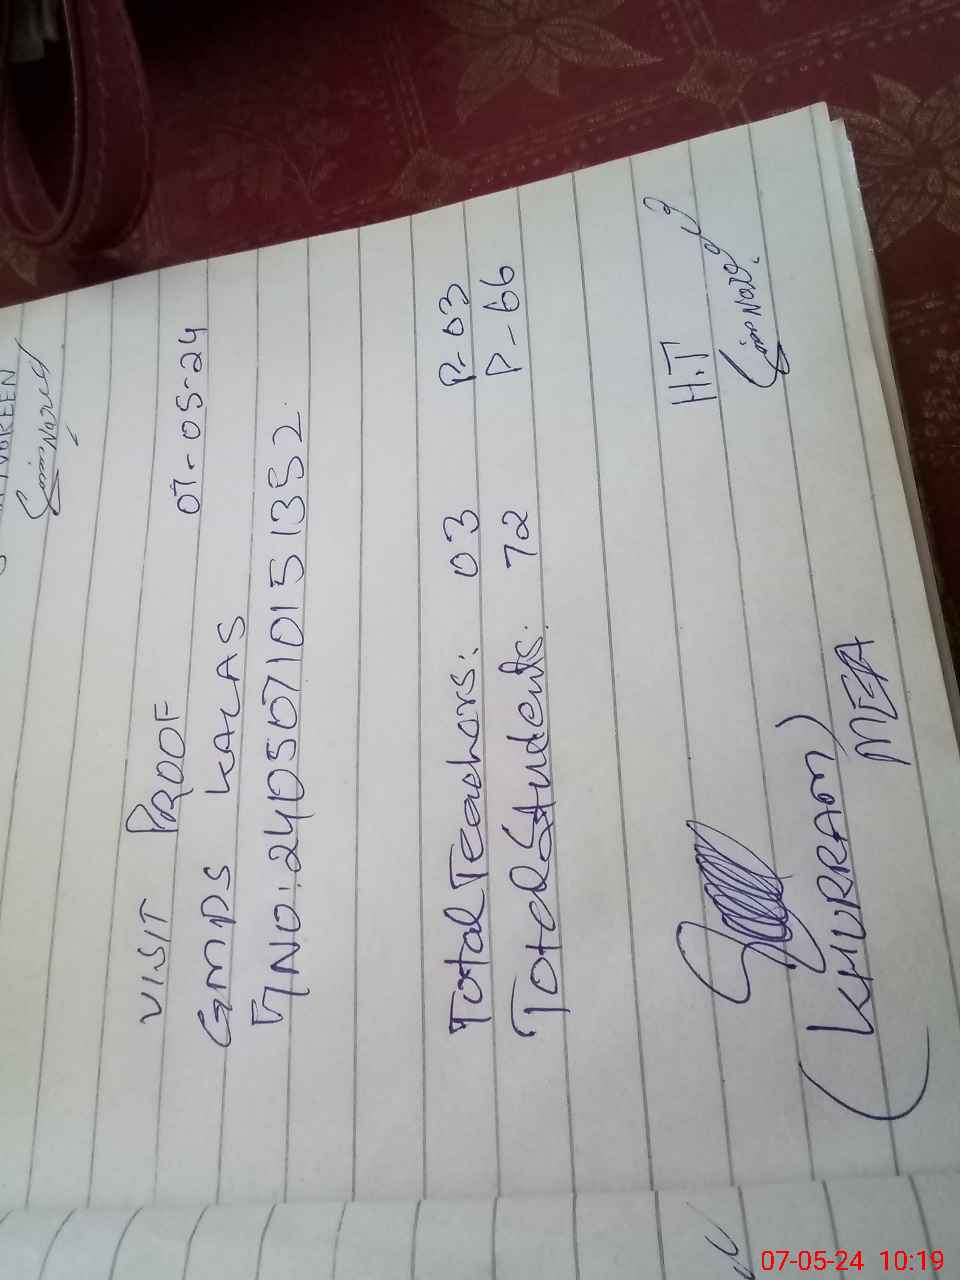 VISIT PROOF
07-05-24
GMPS KALAS
TNO: 2405071015 1352
Total Teachors: 03 P-03
Total Students: 72 P-66
H.T
(KHURRAM)
MEA
07-05-24 10:19